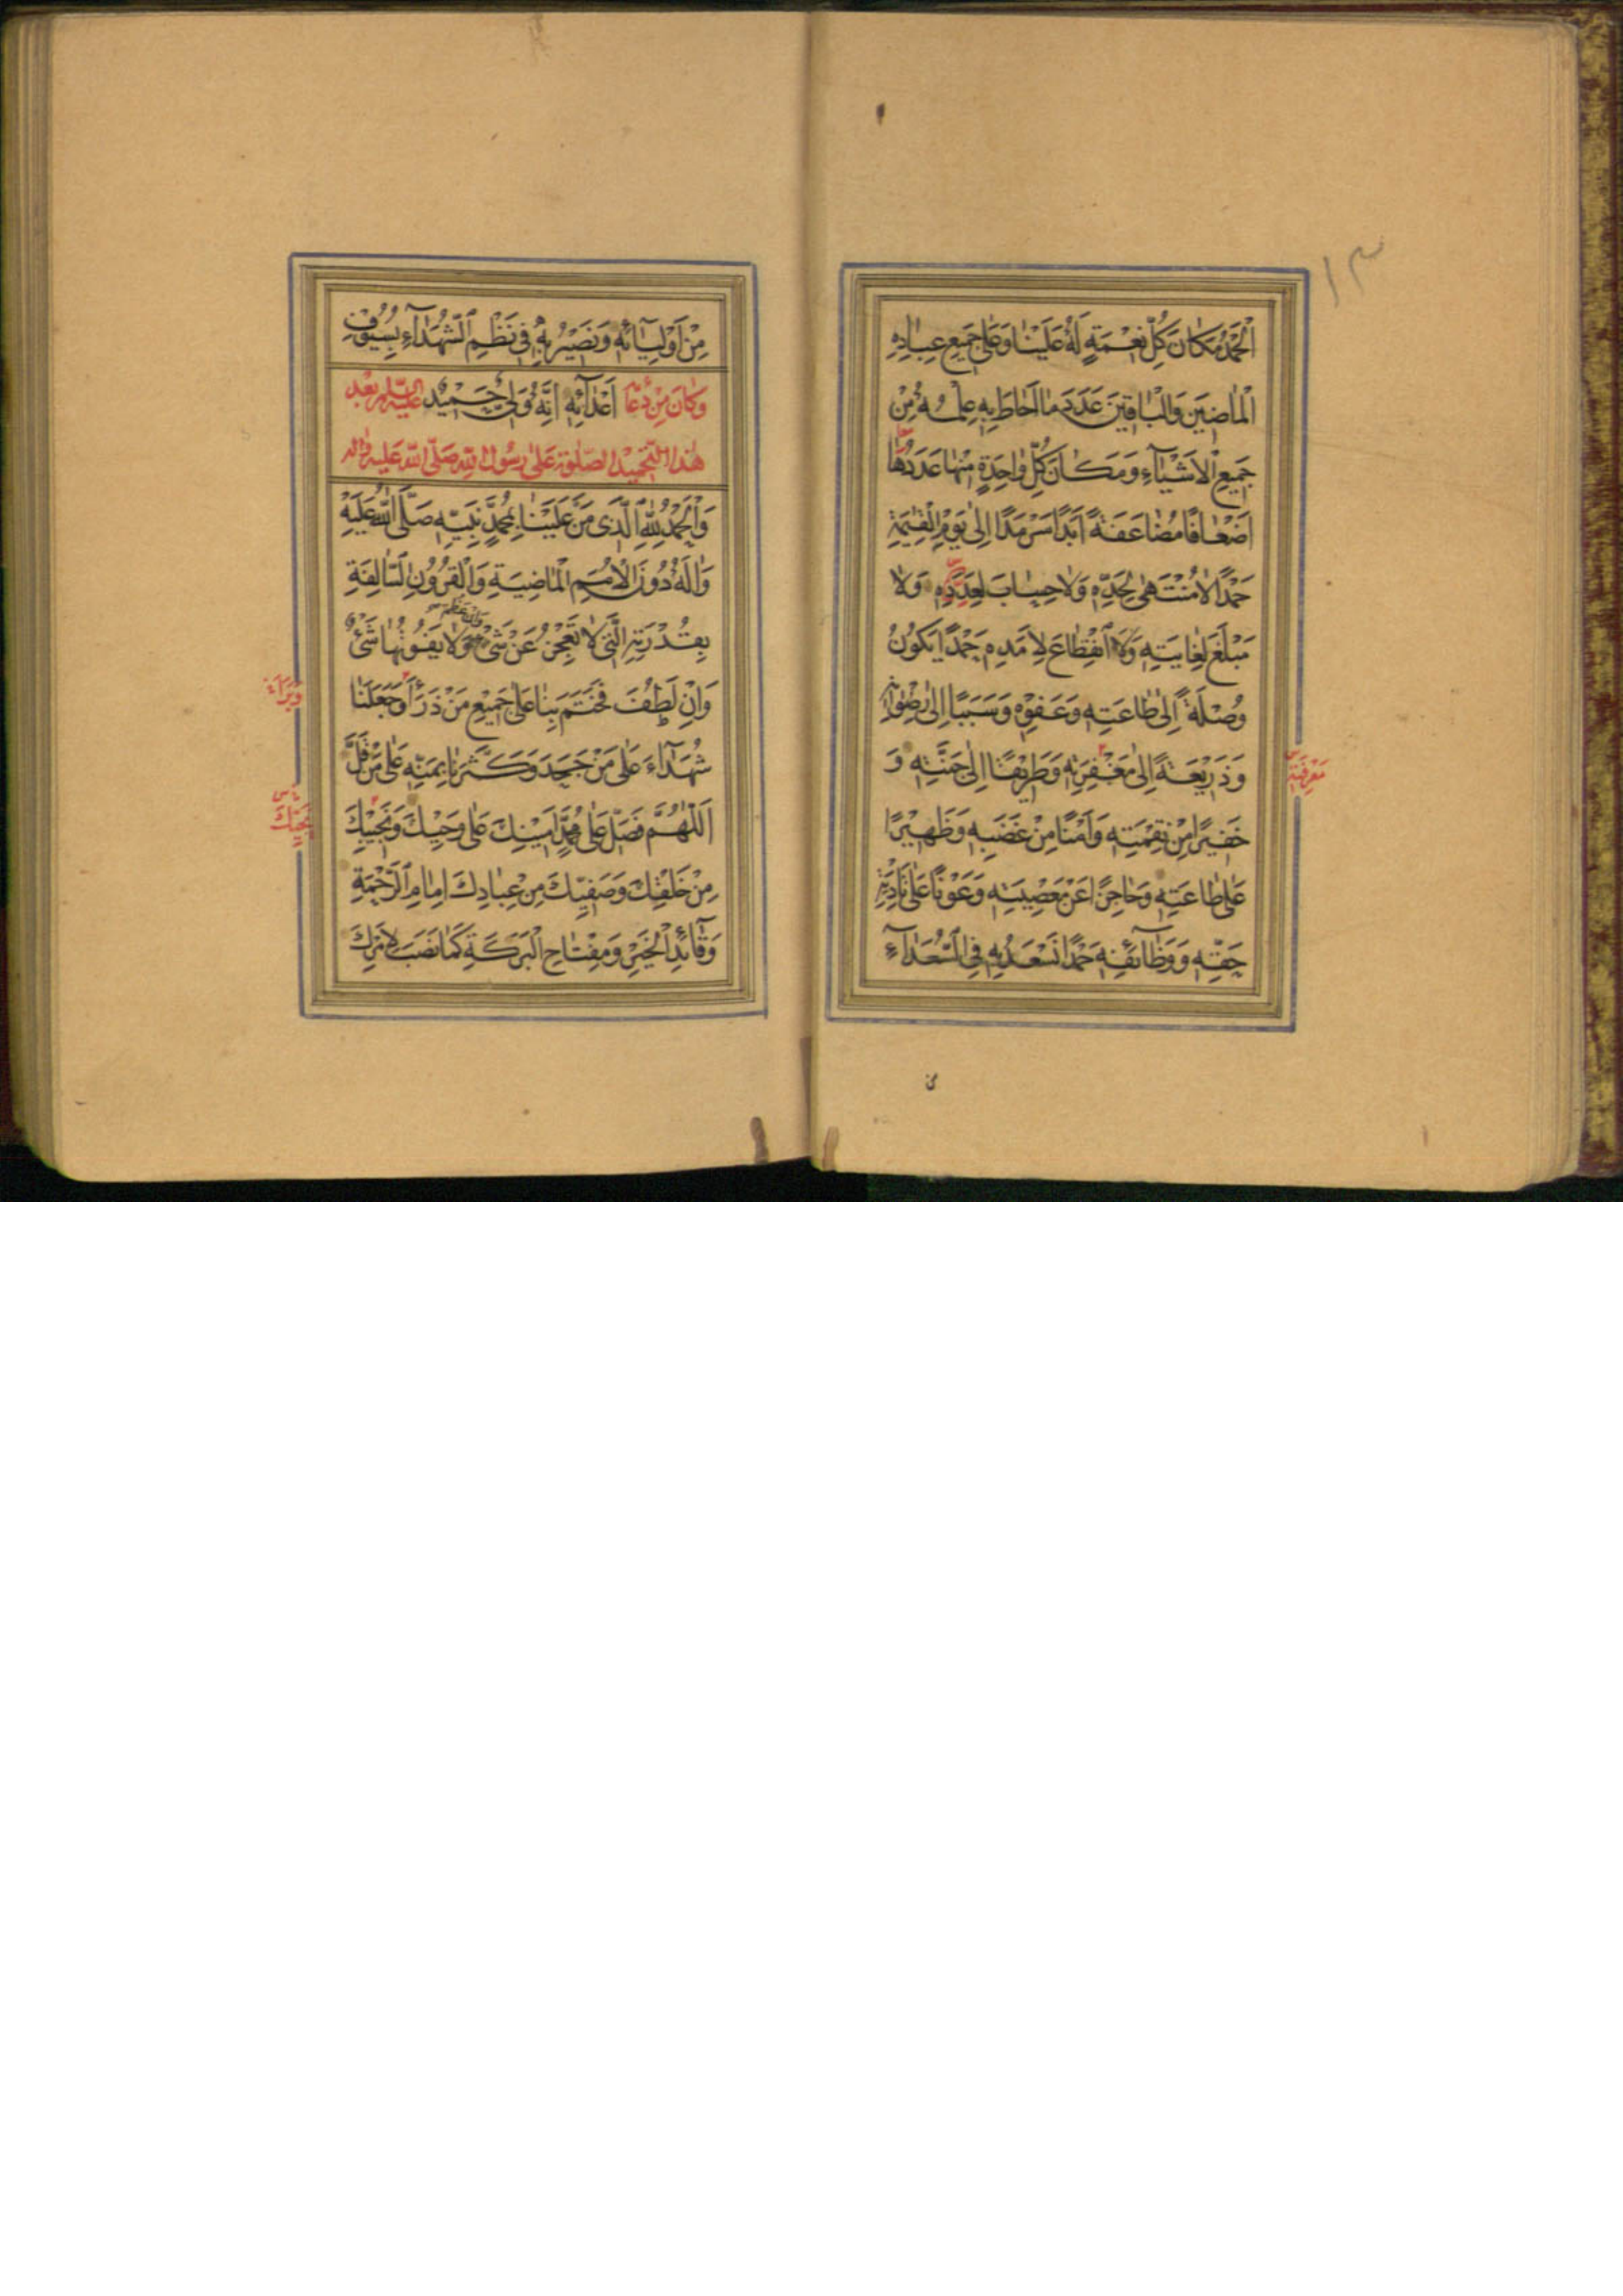 ١٣
اَلْحَمْدُ مَكٰانَ كُلِّ نِعْمَةٍ لَهُ عَلَيْنٰا وَعَلىٰ جَمِيعِ عِبٰادِهِ
الْمٰاضِينَ وَالْبٰاقِينَ عَدَدَ مٰا اَحٰاطَ بِهِ عِلْمُهُ مِنْ
جَمِيعِ الْاَشْيٰآءِ وَمَكٰانَ كُلِّ وٰاحِدَةٍ مِنْهٰا عَدَدُهٰا
اَضْعٰافًا مُضٰاعَفَةً اَبَدًا سَرْمَدًا اِلىٰ يَوْمِ الْقِيٰمَةِ
حَمْدًا لٰا مُنْتَهىٰ لِحَدِّهِ وَلٰا حِسٰابَ لِعَدَدِهِ وَلٰا
مَبْلَغَ لِغٰايَتِهِ وَلَا انْقِطٰاعَ لِاَمَدِهِ حَمْدًا يَكُونُ
وُصْلَةً اِلىٰ طٰاعَتِهِ وَعَفْوِهِ وَسَبَبًا اِلىٰ رِضْوٰانِهِ
وَذَرِيْعَةً اِلىٰ مَغْفِرَتِهِ وَطَرِيْقًا اِلىٰ جَنَّتِهِ وَ
خَفِيْرًا مِنْ نَقِمَتِهِ وَاَمْنًا مِنْ غَضَبِهِ وَظَهِيْرًا
عَلىٰ طٰاعَتِهِ وَحٰاجِزًا عَنْ مَعْصِيَتِهِ وَعَوْنًا عَلىٰ تَاْدِيَةِ
حَقِّهِ وَوَظٰآئِفِهِ حَمْدًا نَسْعَدُ بِهِ فِى السُّعَدٰآءِ
مَعْرِفَتِهِ
مِنْ اَوْلِيٰآئِهِ وَنَصِيْرُ بِهِ فِى نَظْمِ الشُّهَدٰآءِ بِسُيُوفِ
وَكٰانَ مِنْ دُعٰآ اَعْدٰآئِهِ اِنَّهُ وَلِىٌّ حَمِيْدٌ عَلَيْهِ السَّلٰامُ بَعْدَ
هٰذَا التَّحْمِيْدِ الصَّلٰوةُ عَلىٰ رَسُولِ اللّٰهِ صَلَّى اللّٰهُ عَلَيْهِ وَاٰلِهِ
وَالْحَمْدُ لِلّٰهِ الَّذِى مَنَّ عَلَيْنٰا بِمُحَمَّدٍ نَبِيِّهِ صَلَّى اللّٰهُ عَلَيْهِ
وَاٰلِهِ دُونَ الْاُمَمِ الْمٰاضِيَةِ وَالْقُرُونِ السّٰالِفَةِ
بِقُدْرَتِهِ الَّتِى لٰا تَعْجِزُ عَنْ شَىْءٍ وَاِنْ عَظُمَ وَلٰا يَفُوتُهٰا شَىْءٌ
وَاِنْ لَطُفَ فَخَتَمَ بِنٰا عَلىٰ جَمِيعِ مَنْ ذَرَاَ وَجَعَلَنٰا
شُهَدٰآءَ عَلىٰ مَنْ جَحَدَ وَكَثَّرَنٰا بِمَنِّهِ عَلىٰ مَنْ قَلَّ
اَللّٰهُمَّ فَصَلِّ عَلىٰ مُحَمَّدٍ اَمِيْنِكَ عَلىٰ وَحْيِكَ وَنَجِيْبِكَ
مِنْ خَلْقِكَ وَصَفِيِّكَ مِنْ عِبٰادِكَ اِمٰامِ الرَّحْمَةِ
وَقٰآئِدِ الْخَيْرِ وَمِفْتٰاحِ الْبَرَكَةِ كَمٰا نَصَبَ لِاَمْرِكَ